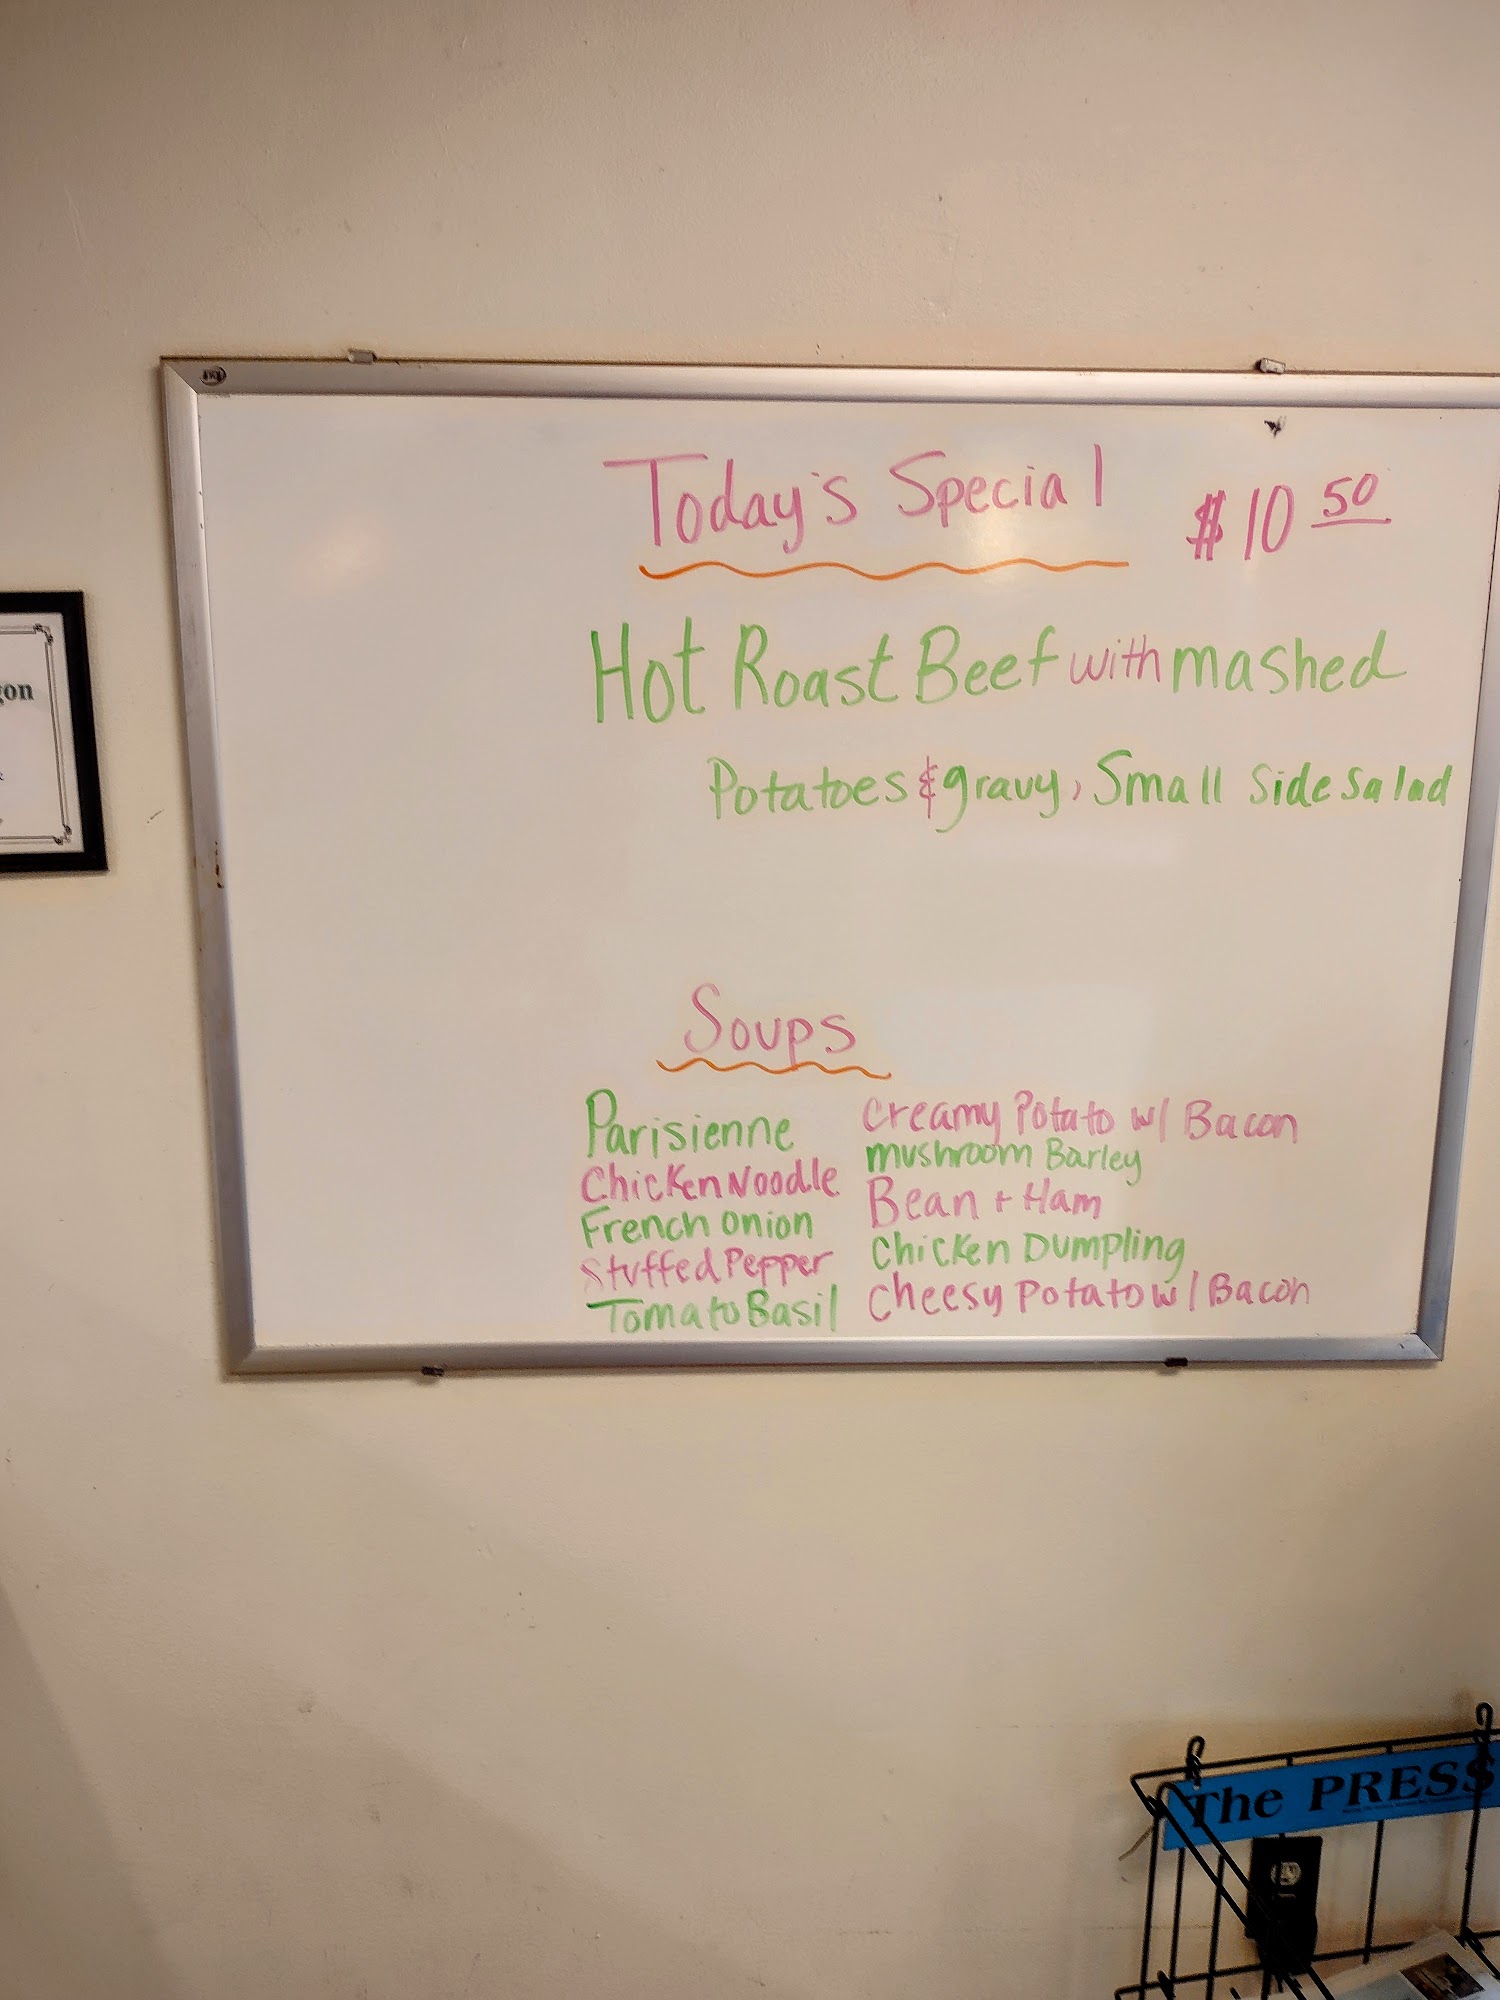 Today's Special $10 50
Hot Roast Beef with mashed
Potatoes & gravy, Small Side Salad
Soups
Parisienne
Chicken Noodle
French onion
Stuffed Pepper
Tomato Basil
Creamy Potato w/ Bacon
mushroom Barley
Bean + Ham
Chicken Dumpling
Cheesy Potato w/ Bacon
The PRESS